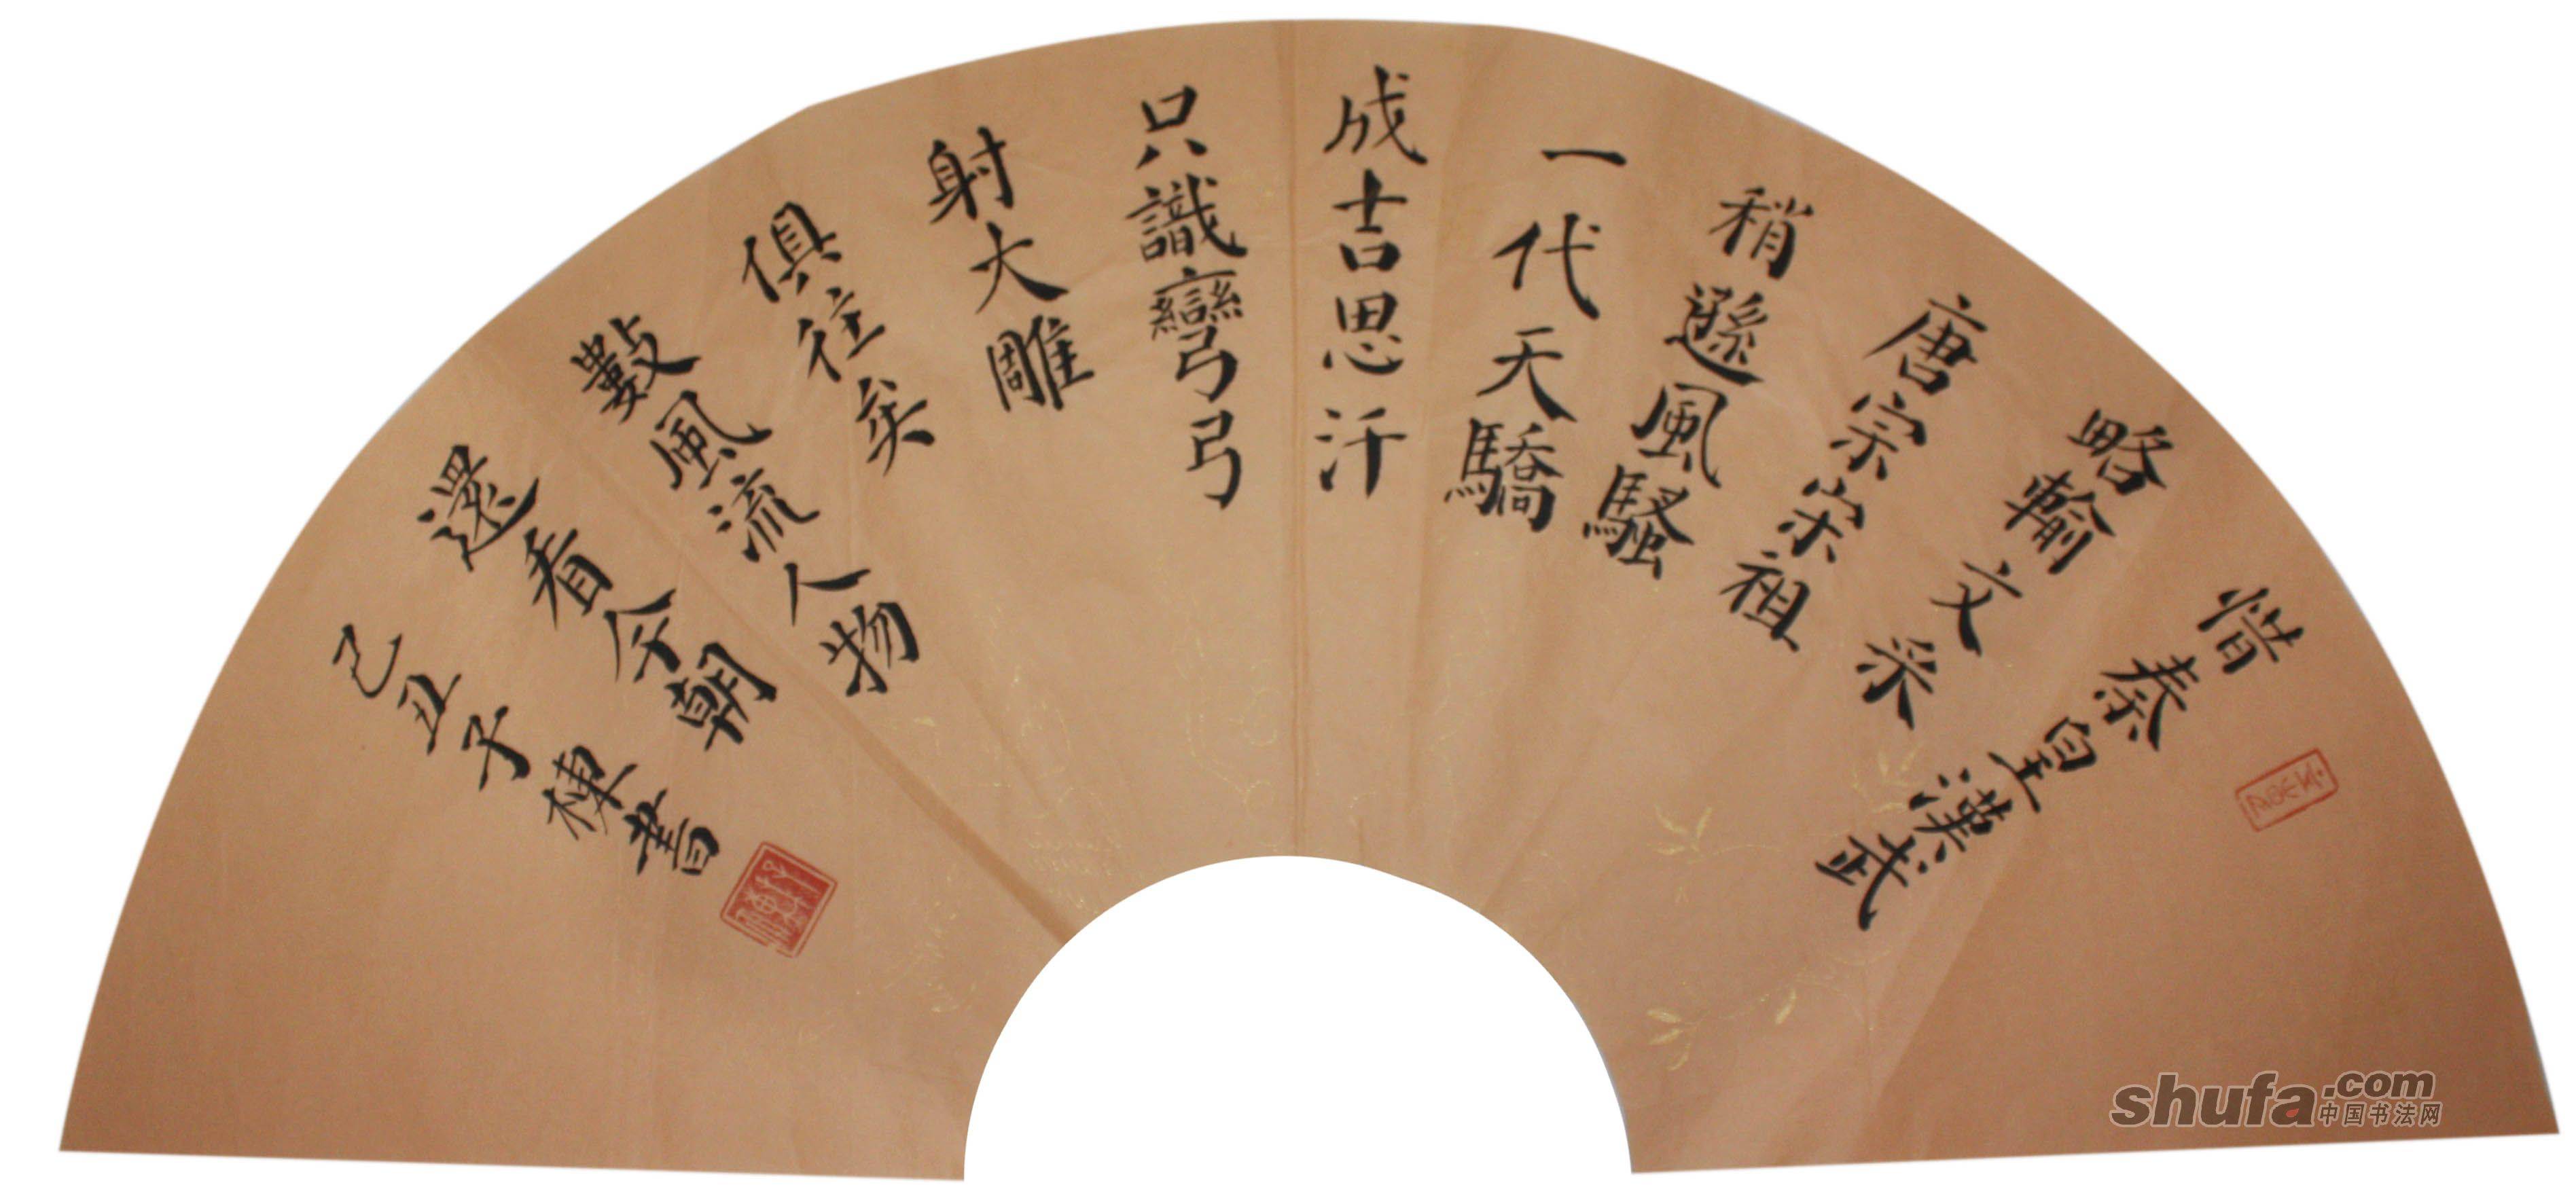 惜秦皇漢武
略輸文采
唐宗宋祖
稍遜風騷
一代天驕
成吉思汗
只識彎弓
弓
射大雕
俱往矣
數風流人物
還看今朝
己丑子棟書
shufa.com
中国书法网